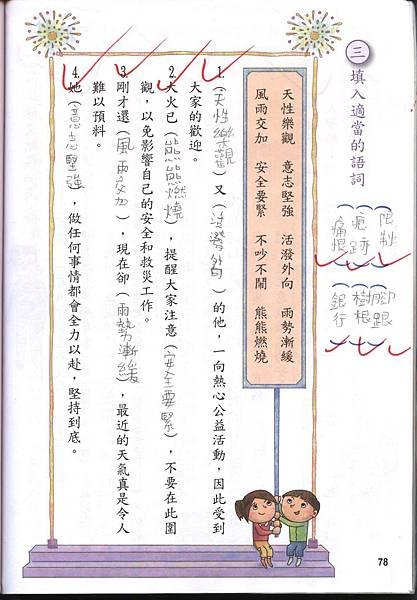 限制
痕跡
痛恨
腳跟
樹根
銀行
三 填入適當的語詞
天性樂觀 意志堅強 活潑外向 雨勢漸緩
風雨交加 安全要緊 不吵不鬧 熊熊燃燒
1.(天性樂觀)又(活潑外向)的他,一向熱心公益活動,因此受到
大家的歡迎。
2.大火已(熊熊燃燒),提醒大家注意(安全要緊),不要在此圍
觀,以免影響自己的安全和救災工作。
3.剛才還(風雨交加),現在卻(雨勢漸緩),最近的天氣真是令人
難以預料。
4.她(意志堅強),做任何事情都會全力以赴,堅持到底。
78